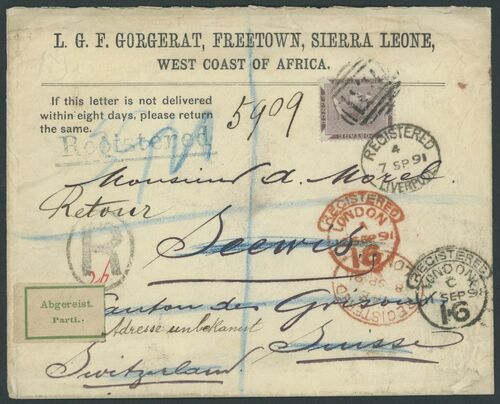 L. G. F. GORGERAT, FREETOWN, SIERRA LEONE,
WEST COAST OF AFRICA.
If this letter is not delivered
within eight days, please return
the same.
5909
Registered
REGISTERED
4
7 SP 91
LIVERPOOL
Monsieur A. Morel
Retour
R
REGISTERED
LONDON
SP 91
16
Seewis
REGISTERED
LONDON
C
SEP 91
16
REGISTERED
Abgereist.
Parti.
Canton des Grisons
Adresse unbekannt
Suisse
Switzerland